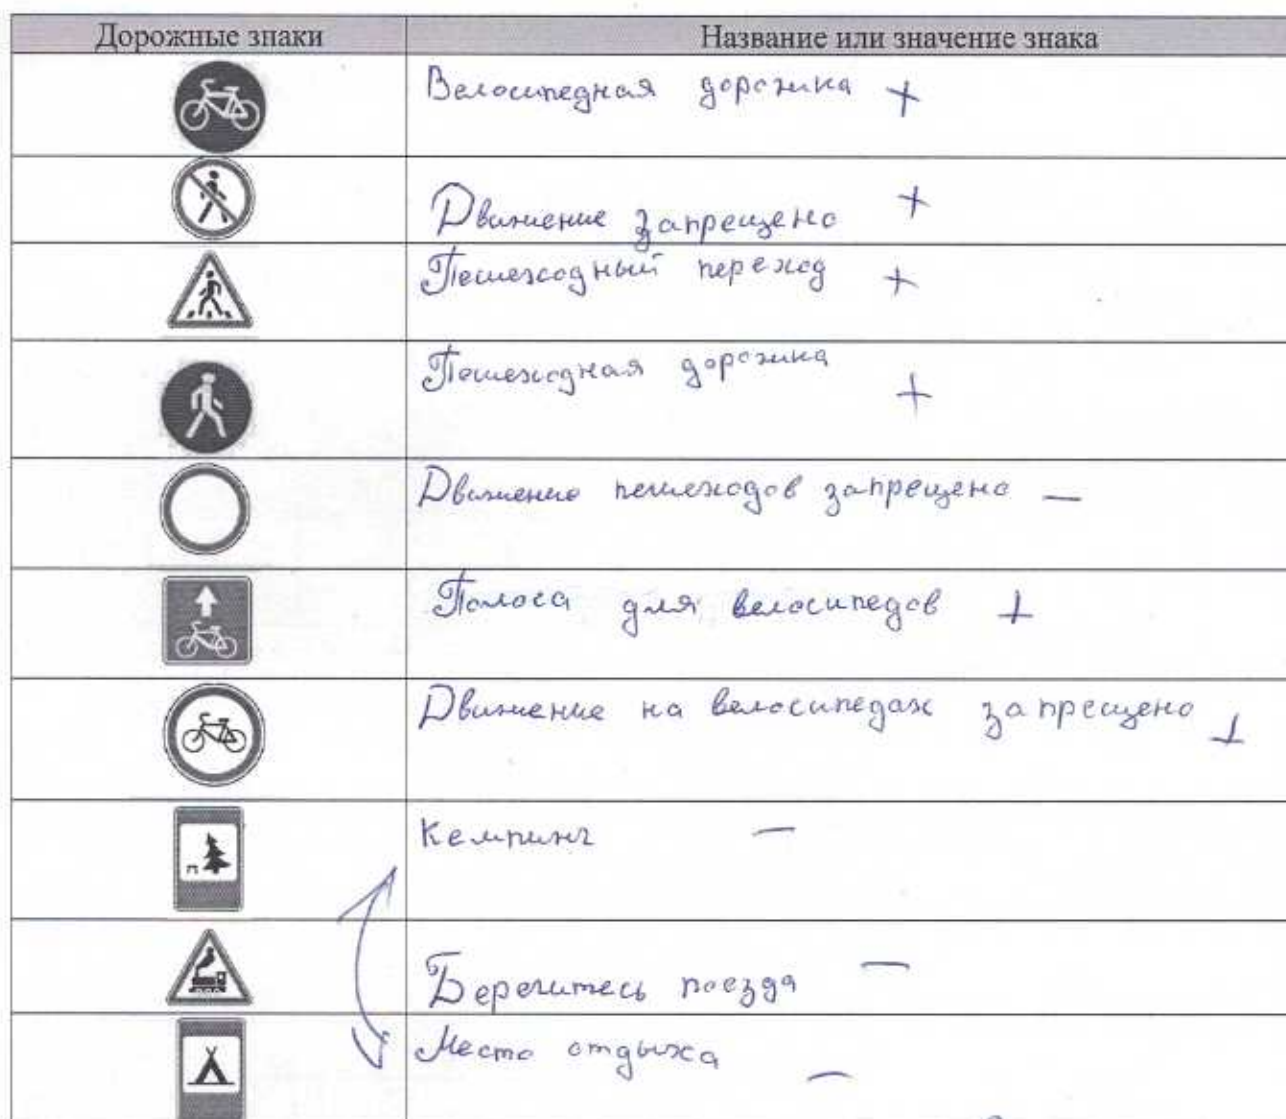 Дорожные знаки Название или значение знака
Велосипедная дорожка +
Движение запрещено +
Пешеходный переход +
Пешеходная дорожка +
Движение пешеходов запрещено —
Полоса для велосипедов +
Движение на велосипедах запрещено +
Кемпинг —
Берегитесь поезда —
Место отдыха —